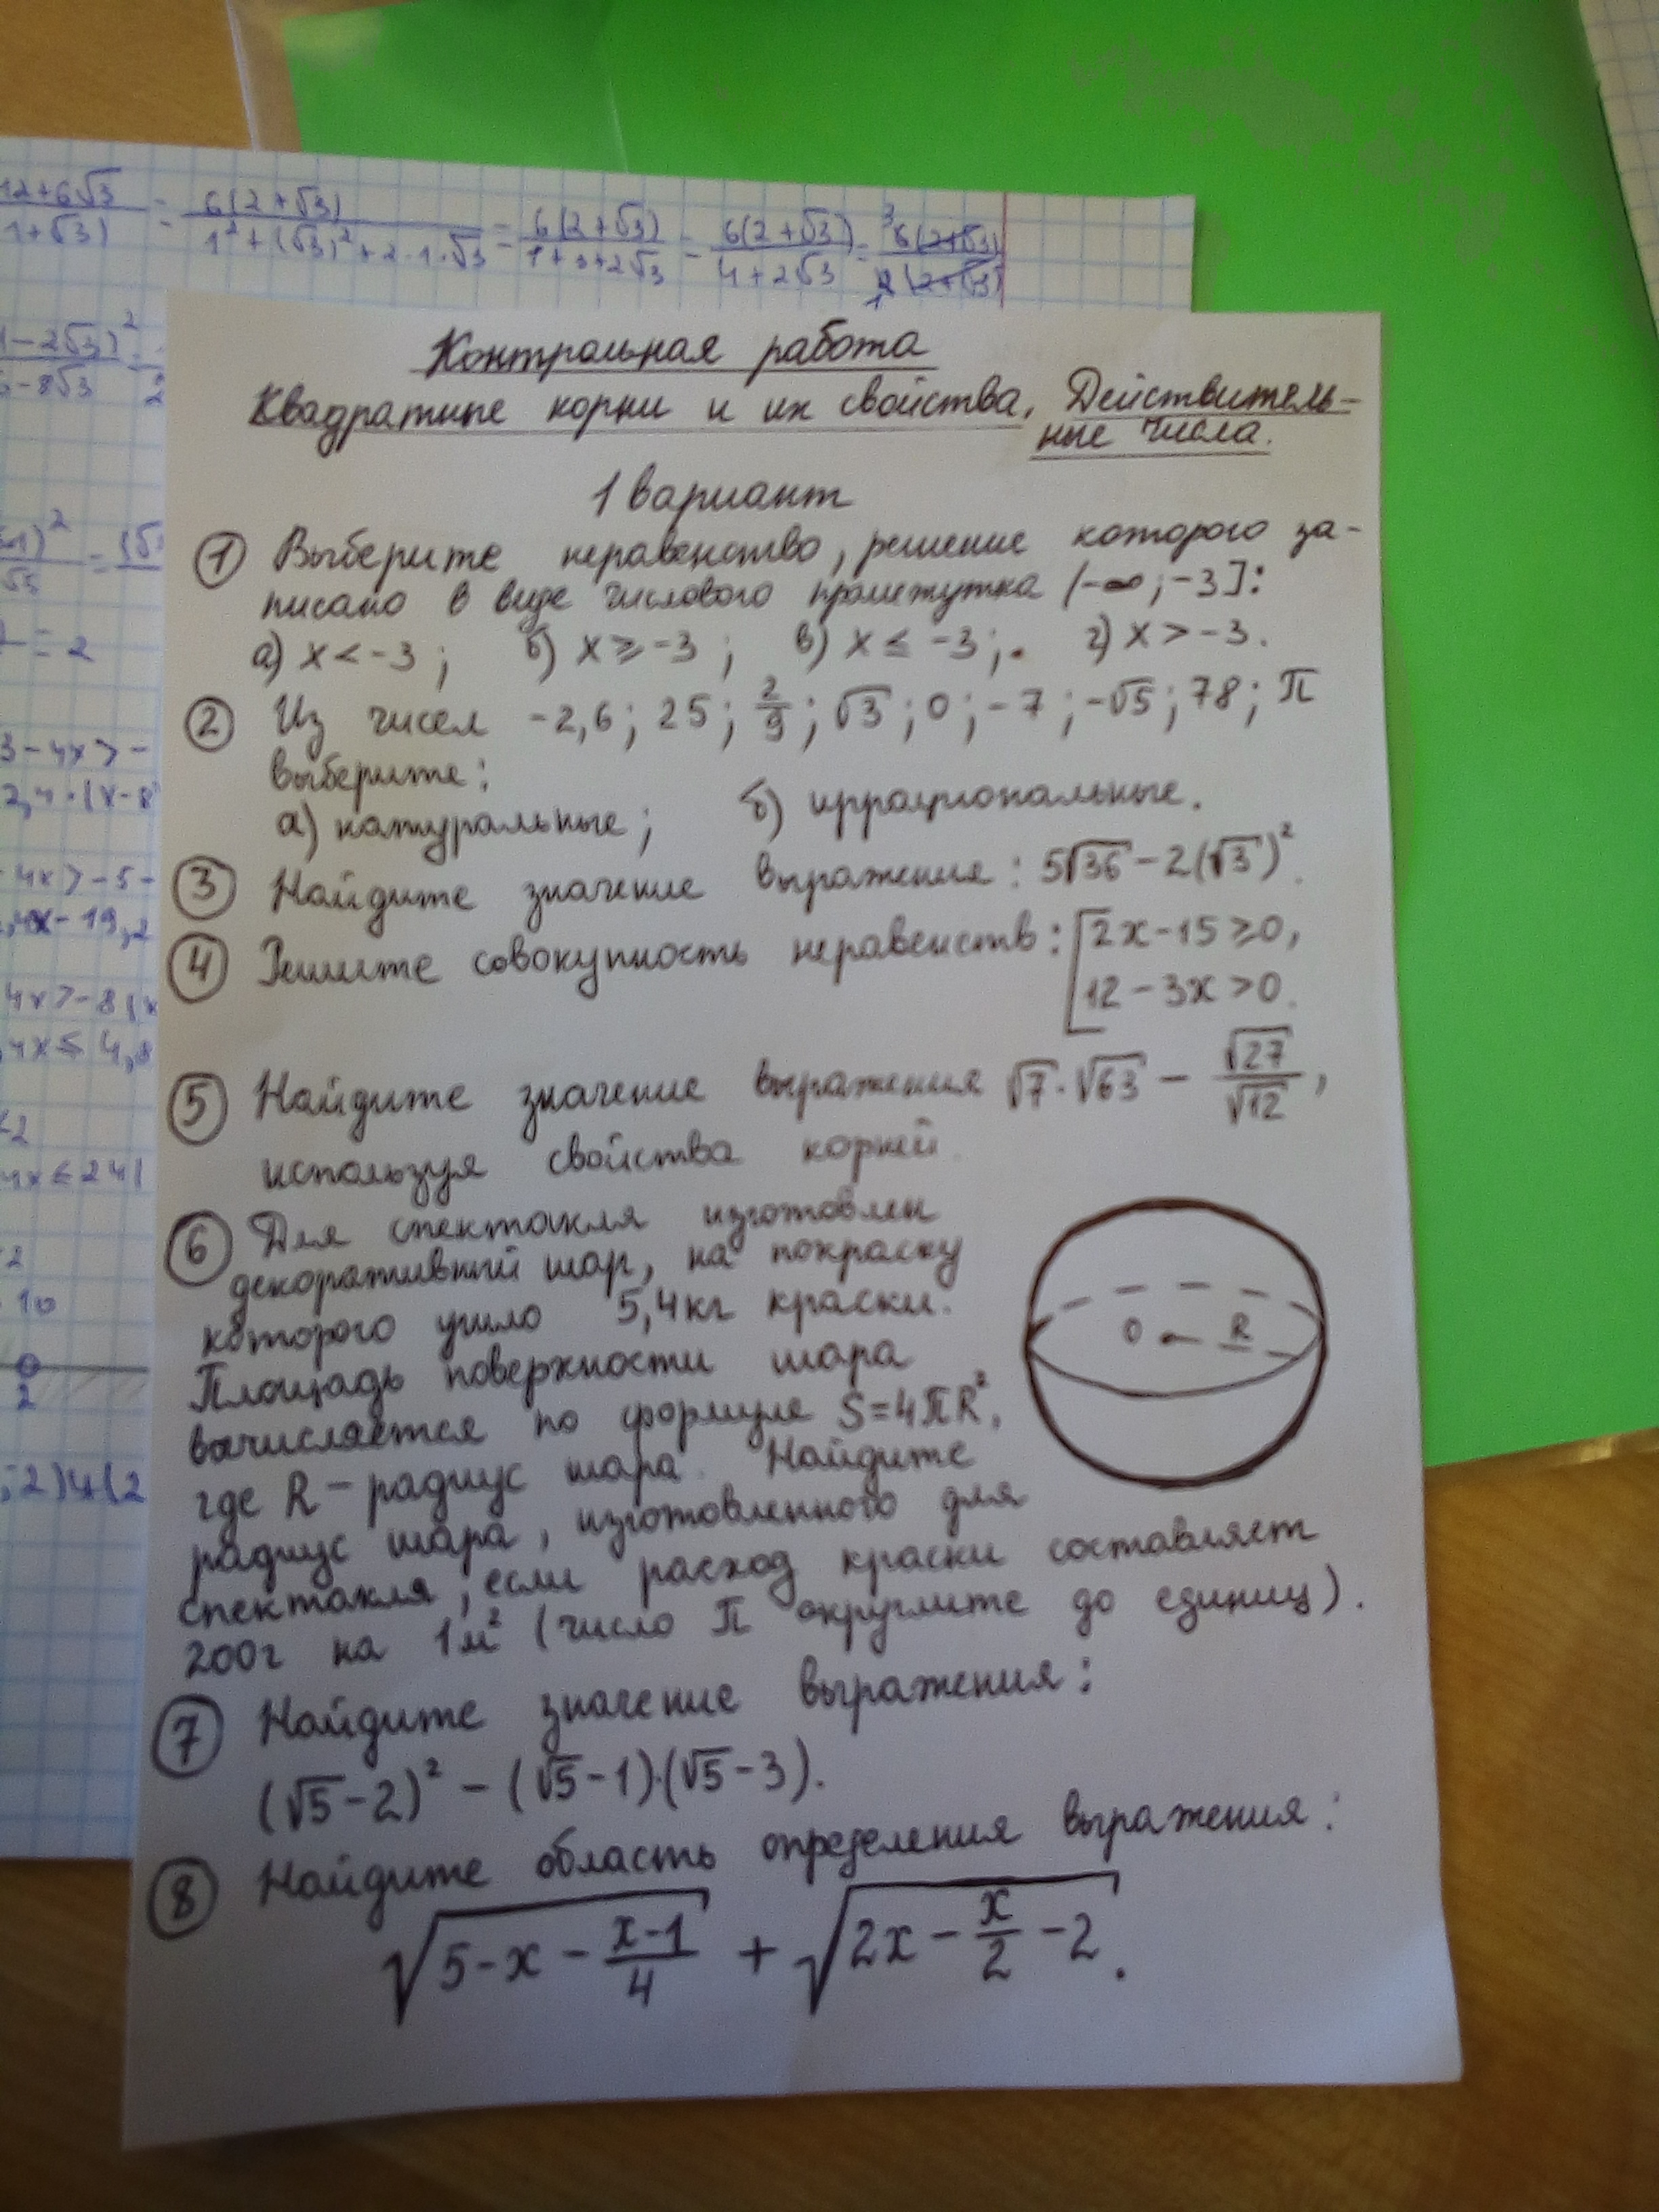 12+6√3/(1+√3) = 6(2+√3)/(1²+(√3)²+2·1·√3) = 6(2+√3)/(1+3+2√3) = 6(2+√3)/(4+2√3) = 6(2+√3)/2(2+√3)
Контрольная работа
Квадратные корни и их свойства. Действитель-
ные числа.
1 вариант
① Выберите неравенство, решение которого за-
писано в виде числового промежутка (-∞; -3]:
а) x < -3; б) x ≥ -3; в) x ≤ -3; г) x > -3.
② Из чисел -2,6; 25; 2/9; √3; 0; -7; -√5; 78; π
выберите:
а) натуральные; б) иррациональные.
③ Найдите значение выражения: 5√36 - 2(√3)².
④ Решите совокупность неравенств: [2x - 15 ≥ 0,
12 - 3x > 0.
⑤ Найдите значение выражения √7 · √63 - √27/√12,
используя свойства корней.
⑥ Для спектакля изготовлен
декоративный шар, на покраску
которого ушло 5,4 кг краски.
Площадь поверхности шара
вычисляется по формуле S = 4πR²,
где R – радиус шара. Найдите
радиус шара, изготовленного для
спектакля, если расход краски составляет
200г на 1м² (число π округлите до единиц).
O R
⑦ Найдите значение выражения:
(√5 - 2)² - (√5 - 1)·(√5 - 3).
⑧ Найдите область определения выражения:
√(5 - x - (x-1)/4) + √(2x - x/2 - 2).